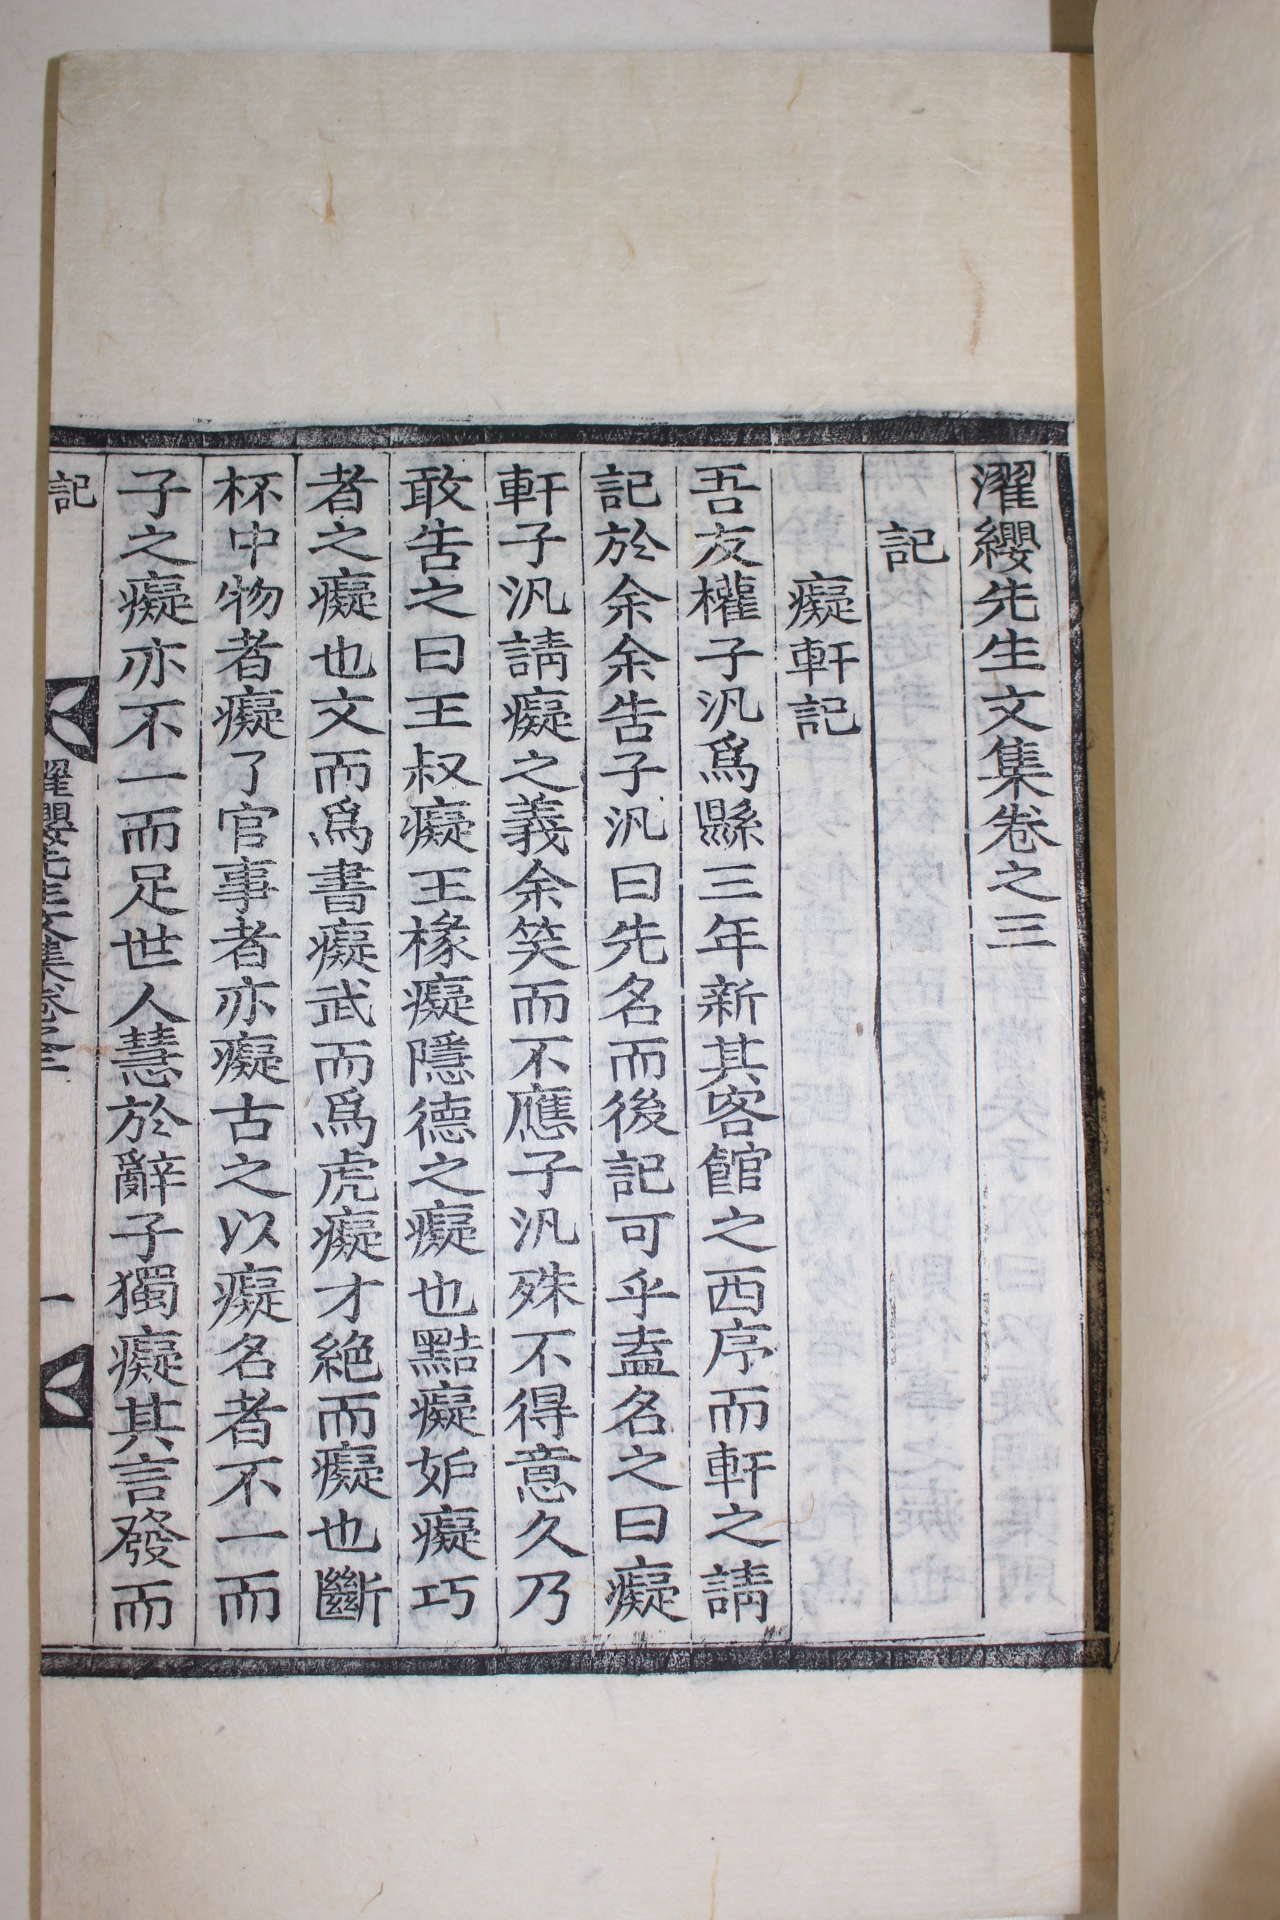 濯纓先生文集卷之三
記
癡軒記
吾友權子汎爲縣三年新其客館之西序而軒之請
記於余余告子汎曰先名而後記可乎盍名之曰癡
軒子汎請癡之義余笑而不應子汎殊不得意久乃
敢告之曰王叔癡王椽癡隱德之癡也黠癡妒癡巧
者之癡也文而爲書癡武而爲虎癡才絕而癡也斷
杯中物者癡了官事者亦癡古之以癡名者不一而
子之癡亦不一而足世人慧於辭子獨癡其言發而
記
濯纓先生文集卷之三
一